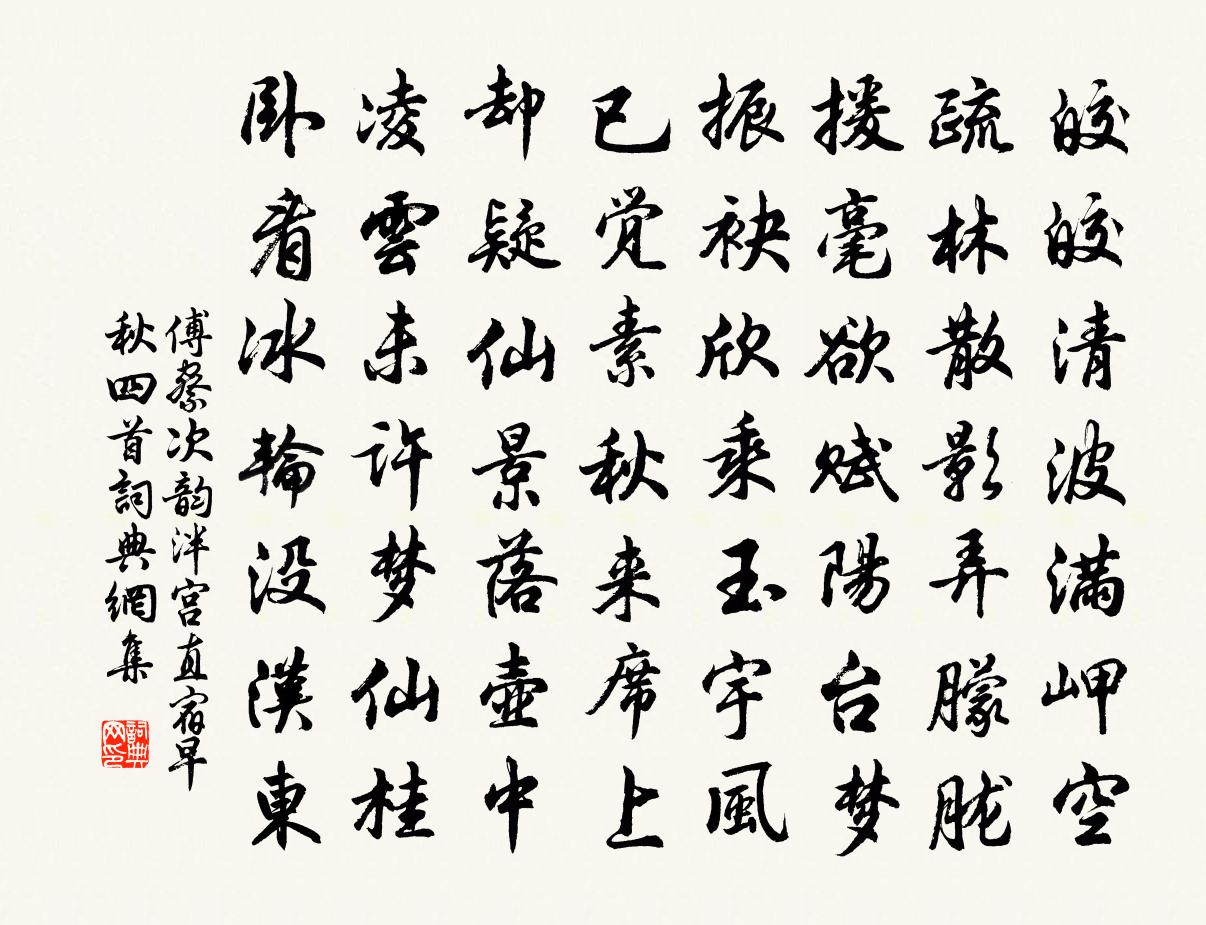 皎皎清波滿岬空
疏林散影弄朦胧
援毫欲赋陽台梦
振袂欣乘玉宇風
已觉素秋来席上
却疑仙景落壶中
凌雲未许梦仙桂
卧看冰輪没漢東
傅察次韵泮宫直宿早
秋四首詞典網集
詞典
网印